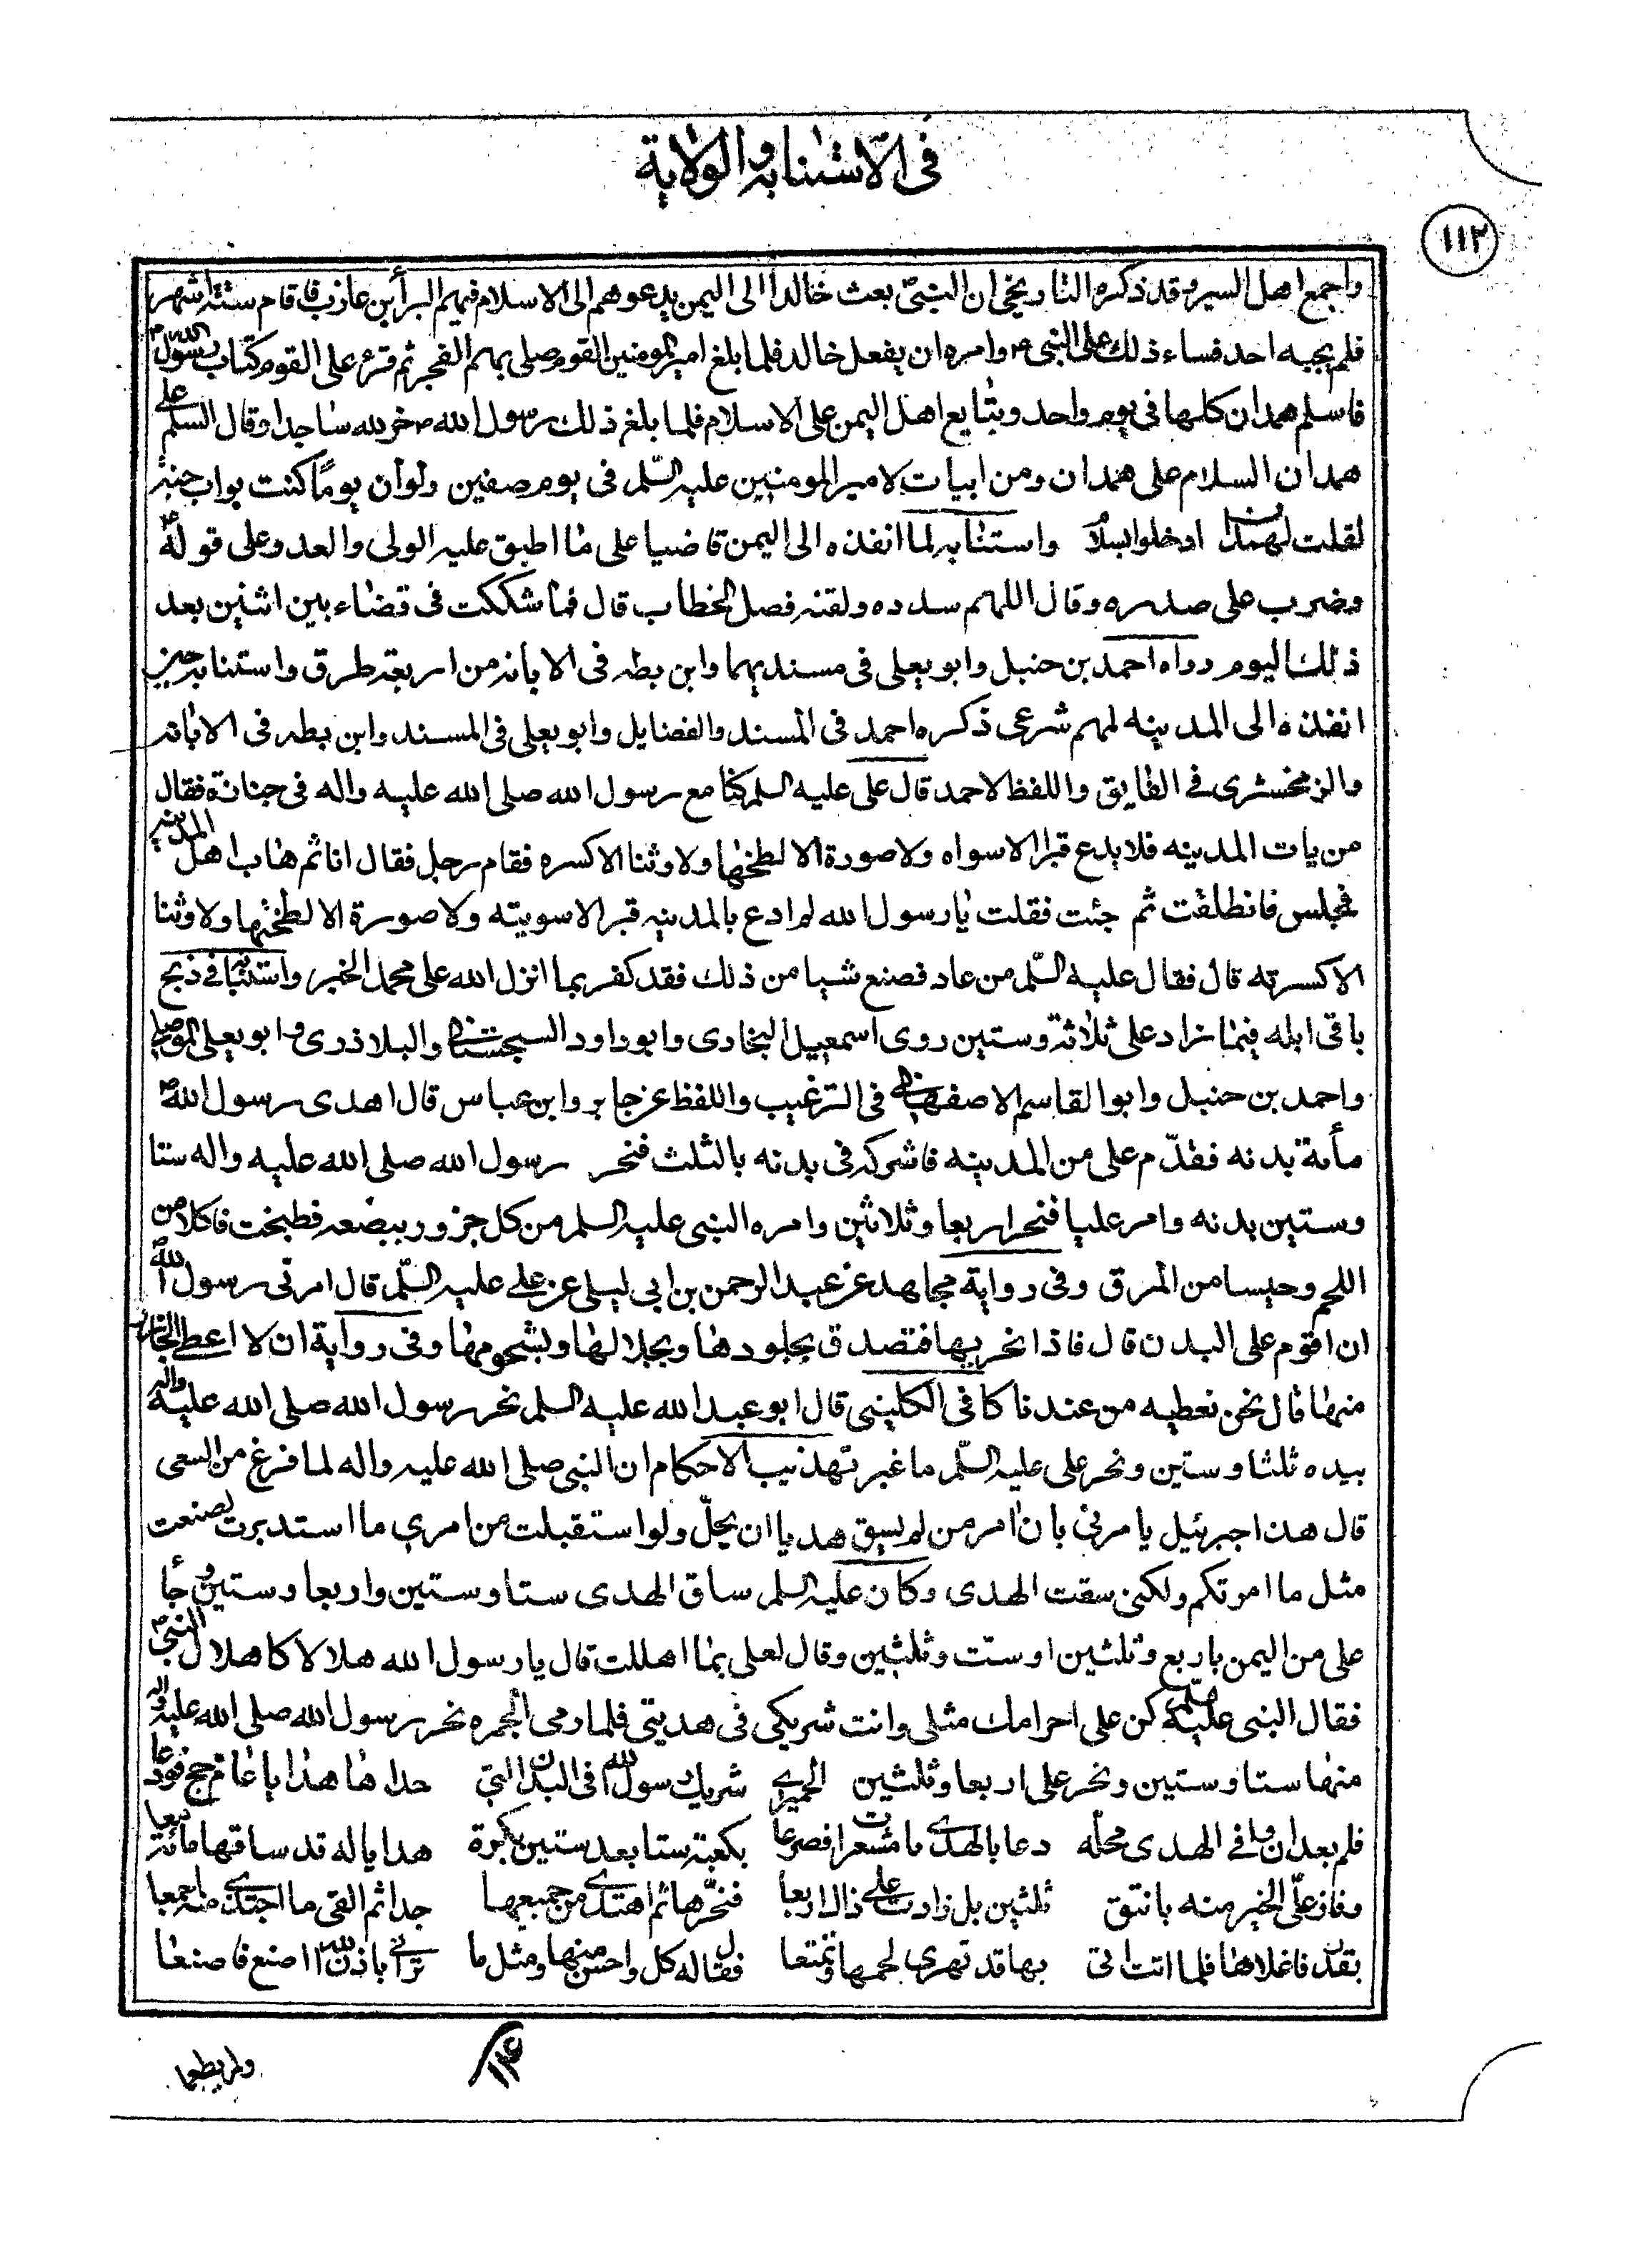 فى الاستنابه والولاية
١١٢
واجمع اهل السير وقد ذكره التاريخى ان النبىّ بعث خالدا الى اليمن يدعوهم الى الاسلام فيهم البرأ بن عازب فاقام ستة اشهر
فلم يجبه احد فساء ذلك على النبى ص وامره ان يفعل خالد فلما بلغ امير المومنين القوم صلى بهم الفجر ثم قرء على القوم كتاب رسول الله ص
فاسلم همدان كلها فى يوم واحد وبتايع اهل اليمن على الاسلام فلما بلغ ذلك رسول الله ص خر لله ساجدا وقال السلم على
همدان السلام على همدان ومن ابيات لامير المومنين عليه السّلم فى يوم صفين ولو ان يومًا كنت بواب جنة
لقلت لهمدان ادخلوا بسلام واستنابه لما انفذه الى اليمن قاضيا على ما اطبق عليه الولى والعدو على قوله ع
وضرب على صدره وقال اللهم سدده ولقنه فصل الخطاب قال فما شككت فى قضاء بين اثنين بعد
ذلك اليوم رواه احمد بن حنبل وابو يعلى فى مسنديهما وابن بطه فى الابانه من اربعة طرق واستنابه حين
انفذه الى المدينه لمهم شرعى ذكره احمد فى المسند والفضايل وابو يعلى فى المسند وابن بطه فى الابانه
والزمخشرى فى الفايق واللفظ لاحمد قال على عليه السلم كنا مع رسول الله صلى الله عليه واله فى جنازة فقال
من يات المدينه فلا يدع قبرا الا سواه ولا صورة الا لطخها ولا وثنا الا كسره فقام رجل فقال انا ثم هاب اهل المدينه
فجلس فانطلقت ثم جئت فقلت يا رسول الله لم ادع بالمدينه قبرا الا سويته ولا صورة الا لطختها ولا وثنا
الا كسرته قال فقال عليه السّلم من عاد فصنع شيا من ذلك فقد كفر بما انزل الله على محمد الخبر واستنابه فى ذبح
باقى ابله فيما زاد على ثلاثة وستين روى اسمعيل البخارى وابو داود السجستانى والبلاذرى وابو يعلى الموصلى
واحمد بن حنبل وابو القاسم الاصفهانى فى الترغيب واللفظ عن جابر وابن عباس قال اهدى رسول الله ص
مأية بدنه فقدّم على من المدينه فاشركه فى بدنه بالثلث فنحر رسول الله صلى الله عليه واله ستا
وستين بدنه وامر عليا فنحر اربعا وثلاثين وامره النبى عليه السلم من كل جزور ببضعه فطبخت فاكلا من
اللحم وحسيا من المرق وفى رواية مجاهد عن عبد الرحمن بن ابى ليلى عن على عليه السّلم قال امرنى رسول الله ص
ان اقوم على البدن قال فاذا نحربها فتصدق بجلودها وبجلالها وبشحومها وفى رواية ان لا اعطى الجازر
منها قال نحن نعطيه من عندنا كافى الكلينى قال ابو عبد الله عليه السلم نحر رسول الله صلى الله عليه واله
بيده ثلثا وستين ونحر على عليه السّلم ما غبر تهذيب الاحكام ان النبى صلى الله عليه واله لما فرغ من السعى
قال هذا جبرئيل يامرنى بان امر من لم يسق هديا ان يحلّ ولو استقبلت من امرى ما استدبرت لصنعت
مثل ما امرتكم ولكنى سقت الهدى وكان عليه السلم ساق الهدى ستا وستين واربعا وستين وجأ
على من اليمن باربع وثلثين او ستّ وثلثين وقال لعلى بما اهللت قال يا رسول الله هلالا كاهلال النبى ص
فقال النبى عليه السلم كن على احرامك مثلى وانت شريكى فى هديتى فلما رمى الجمره نحر رسول الله صلى الله عليه واله
منها ستا وستين ونحر على اربعا وثلثين الحميرى شريك رسول الله فى البدن التى حداها هدايا عام حج فودعا
فلم يعد ان وافى الهدى محلّه دعا بالهدى مشعرات فصرعا بكعبة ستا بعد ستين بكرة هدايا له قد ساقها مائة معا
وفاز علّى الخير منه باينق ثلثين بل زادت على ذاك اربعا فنحّرها ثم اهتدى من جميعها جدا ثم القى ما اجتدى منه اجمعا
بقدر فاغلاها فلما اتت اتى بها قد تهرى لحمها وتمتعا فقال له كل واحس منها ومثل ما ترانى باذن الله اصنع فاصنعا
ولم يطعما